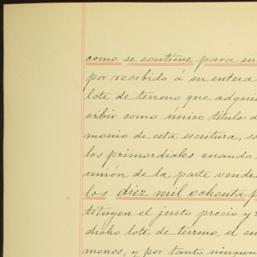 como se contiene para su
por recibido á su entera
lote de terreno que adqui
cibir como único título d
monio de esta escritura, s
los primordiales cuando
unión de la parte vende
los diez mil ochenta p
tituyen el justo precio y
dicho lote de terreno, el c
menos, y por tanto ningun